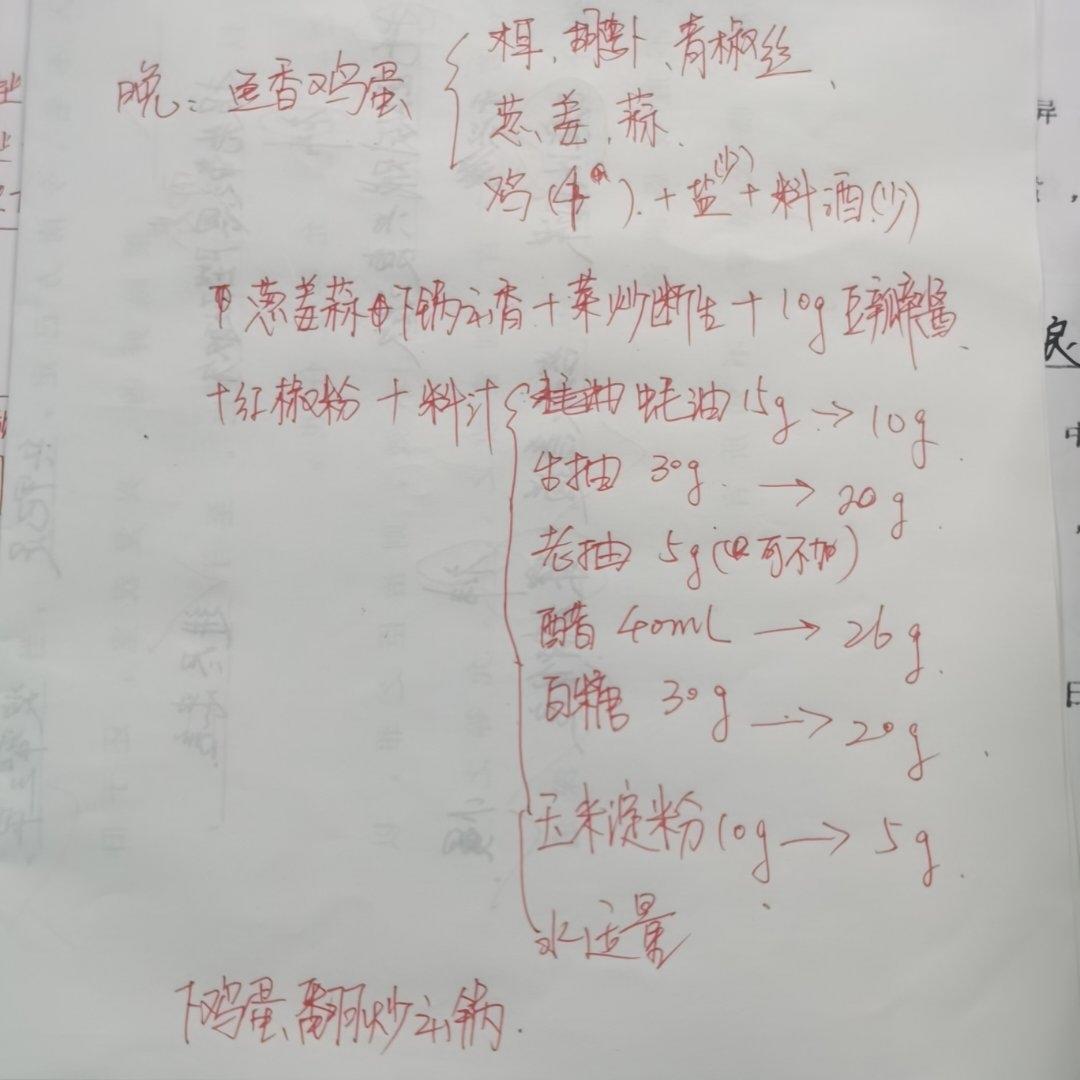 晚：鱼香鸡蛋
木耳、胡萝卜、青椒丝、
葱、姜、蒜、
鸡(4个)+盐(少)+料酒(少)
葱姜蒜下锅出香+菜炒断生+10g豆瓣酱
+红椒粉+料汁
蚝油15g→10g
生抽 30g→20g
老抽 5g(可不加)
醋 40mL→26g
白糖 30g→20g
玉米淀粉10g→5g
水适量
下鸡蛋、翻炒出锅.